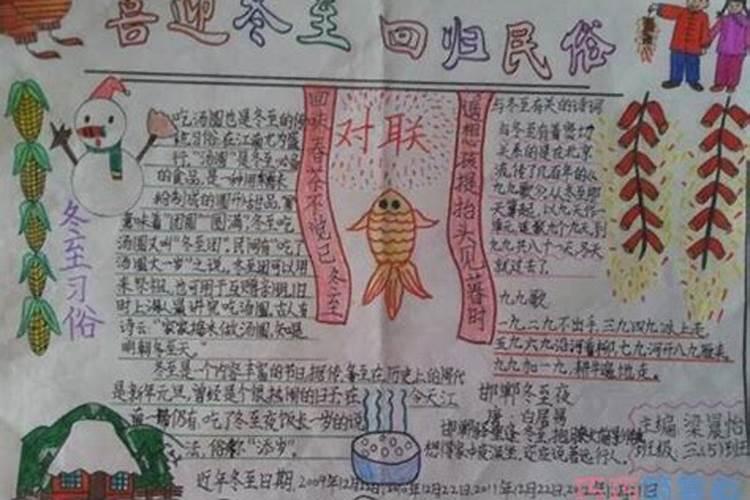 喜迎冬至 回归民俗
吃汤圆也是冬至的传
统习俗,在江南尤为盛
行。"汤圆"是冬至必备
的食品,是一种用糯米
粉制成的圆形甜品,"圆"
意味着"团圆""圆满",冬至吃
汤圆又叫"冬至团"。民间有"吃了
汤圆大一岁"之说。冬至团可以用
来祭祖,也可用于互赠亲朋。旧
时上海人最讲究吃汤圆。古人有
诗云:"家家捣米做汤圆,知是
明朝冬至天。"
冬至习俗
冬至是一个内容丰富的节日,据传,冬至在历史上的周代
是新年元旦,曾经是个很热闹的日子。在今天江
南一带仍有吃了冬至夜饭长一岁的说
法,俗称"添岁"。
近年冬至日期:2009年12月22日,2010年12月22日,2011年12月22日
回味春茶不觉已冬至
对联
遥想孩提抬头见暮时
与冬至有关的诗词
与冬至有着密切
关系的是在北京
流传了几百年的《
九九歌》。从冬至那
天算起,以九天作一
单元,连数九个九天,到
九九共八十一天,冬天
就过去了。
九九歌
一九二九不出手,三九四九冰上走,
五九六九沿河看柳,七九河开八九雁来,
九九加一九,耕牛遍地走。
邯郸冬至夜
唐 白居易
邯郸驿里逢冬至,抱膝灯前影伴身。
想得家中夜深坐,还应说着远行人。
主编:梁晨怡
班级:三(5)班